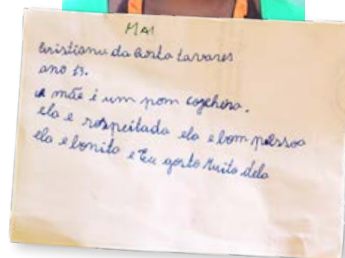 MAI
Cristianu da Costa tavares
ano 13.
a mãe i um pom cozhera.
ela e respeitada ela e bom pessoa
ela e bonito e Eu gosto Muito dela